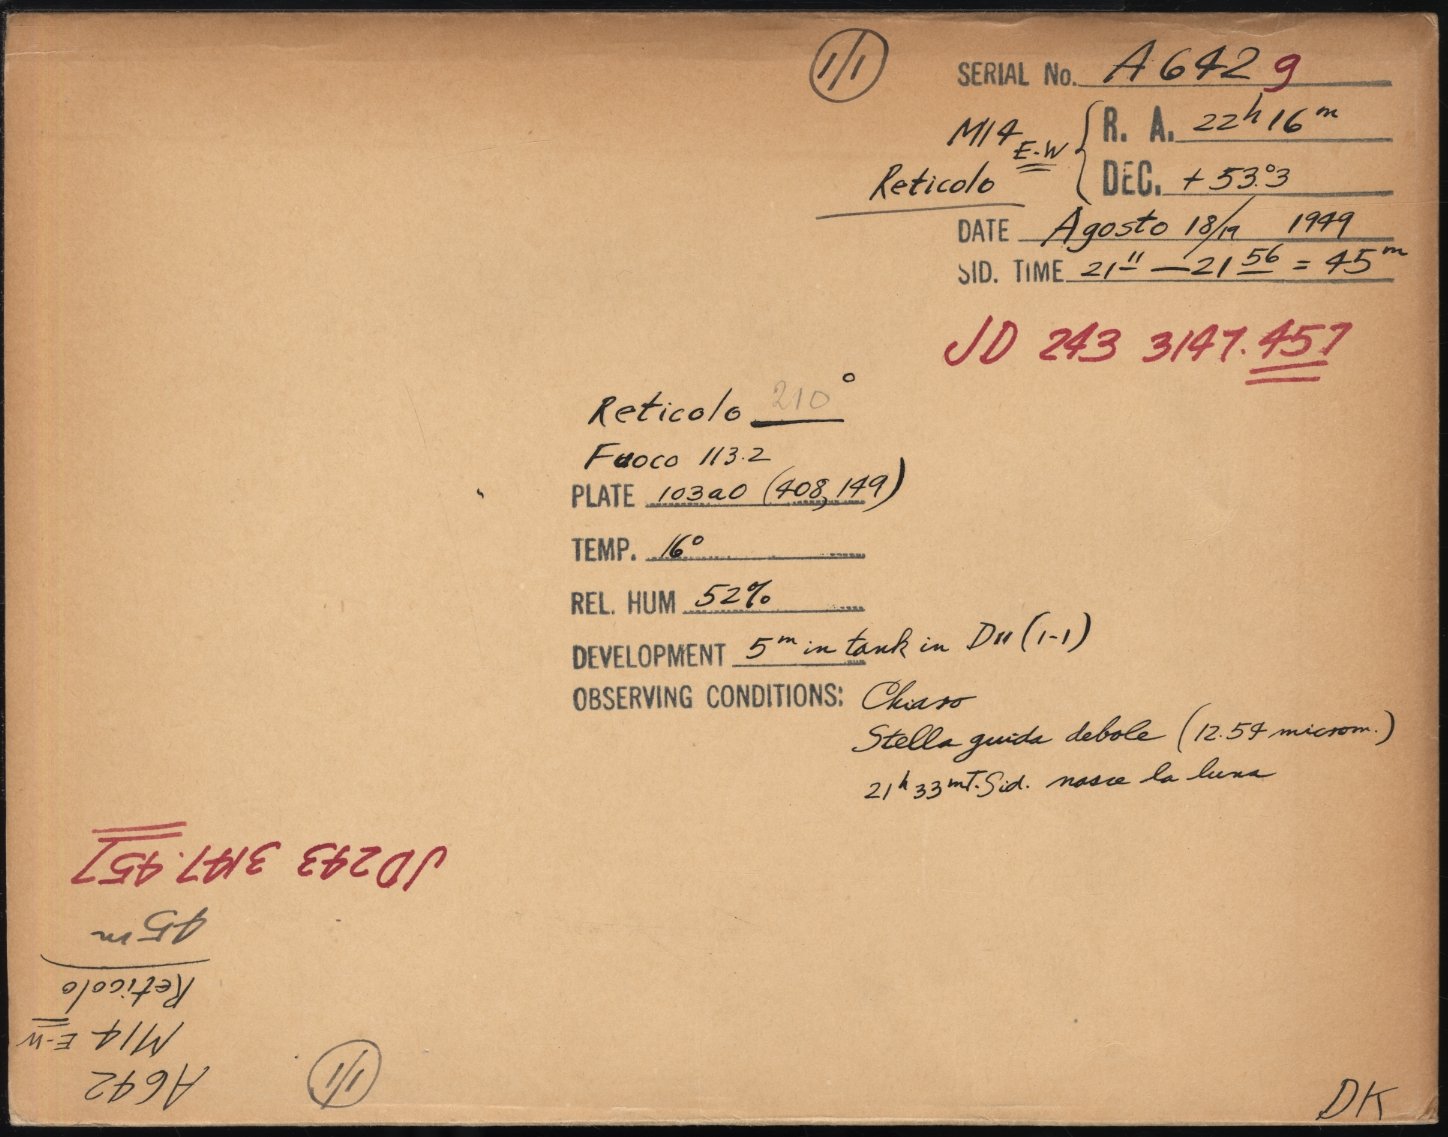 1/1
SERIAL No. A642 g
M14 E-W { R. A. 22h 16m
Reticolo DEC. + 53.°3
DATE Agosto 18/19 1949
SID. TIME 21 11 — 21 56 = 45m
JD 243 3147.457
Reticolo 210°
Fuoco 113.2
PLATE 103aO (408,149)
TEMP. 16°
REL. HUM 52%
DEVELOPMENT 5m in tank in D11 (1-1)
OBSERVING CONDITIONS: Chiaro
Stella guida debole (12.54 microm.)
21h 33m T. Sid. nasce la luna
A642
M14 E-W
Reticolo
45m
JD 243 3147.457
1/1
DK